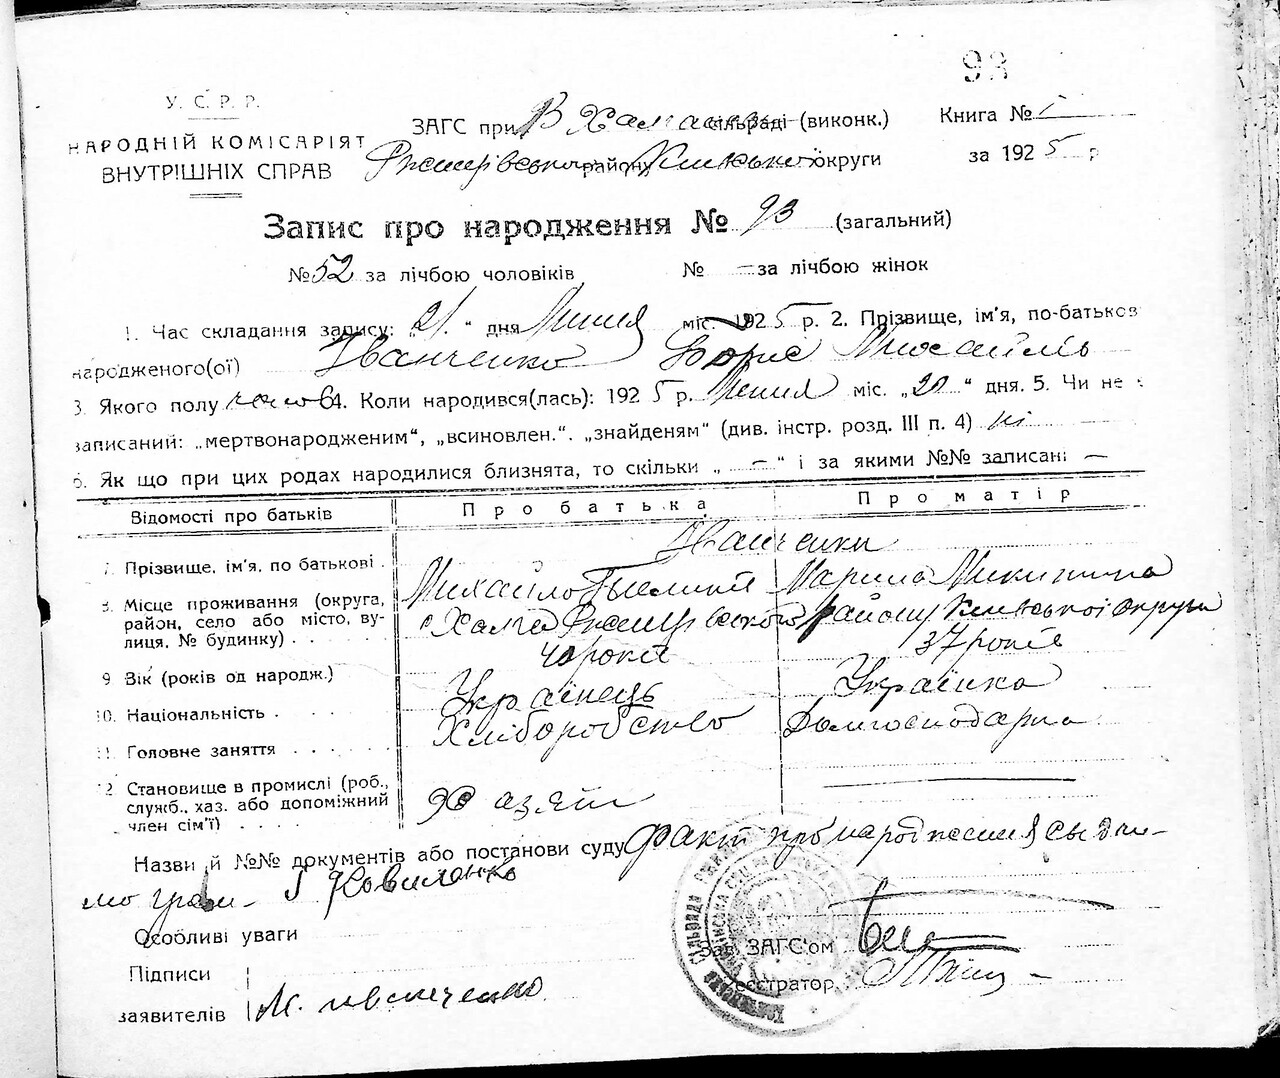 93
У. С. Р. Р.
НАРОДНІЙ КОМІСАРІЯТ
ВНУТРІШНІХ СПРАВ
ЗАГС при В Халчанськ сільраді (виконк.)
Ржищівської району Київської округи
Книга № 1
за 1925 р
Запис про народження № 93 (загальний)
№ 52 за лічбою чоловіків № — за лічбою жінок
1. Час складання запису: „21." дня Липня міс. 1925 р. 2. Прізвище, ім'я, по-батьков
народженого(ої) Іванченко Борис Михайль
3. Якого полу чолов 4. Коли народився(лась): 1925 р. Липня міс. „20" дня. 5. Чи не
записаний: „мертвонародженим", „всиновлен.". „знайденям" (див. інстр. розд. III п. 4) ні
6. Як що при цих родах народилися близнята, то скільки „—" і за якими №№ записані —
Відомості про батьків Про батька Про матір
Іванченки
7. Прізвище, ім'я, по батькові . Михайло Марина Микитина
8. Місце проживання (округа, район, село або місто, вулиця, № будинку) . . . с Халча Ржищівського району Київської округи
9. Вік (років од народж.) 40 років 37 років
10. Національність . . . . Українець Українка
11. Головне заняття . . . . . Хліборобство Домгосподарка
12 Становище в промислі (роб., служб., хаз. або допоміжний член сім'ї) . . . .
Назви й №№ документів або постанови суду Факт про народження
мо гром. Коваленко
Особливі уваги
Зав. ЗАГС'ом
Підписи
заявителів М. Іванченко
Реєстратор